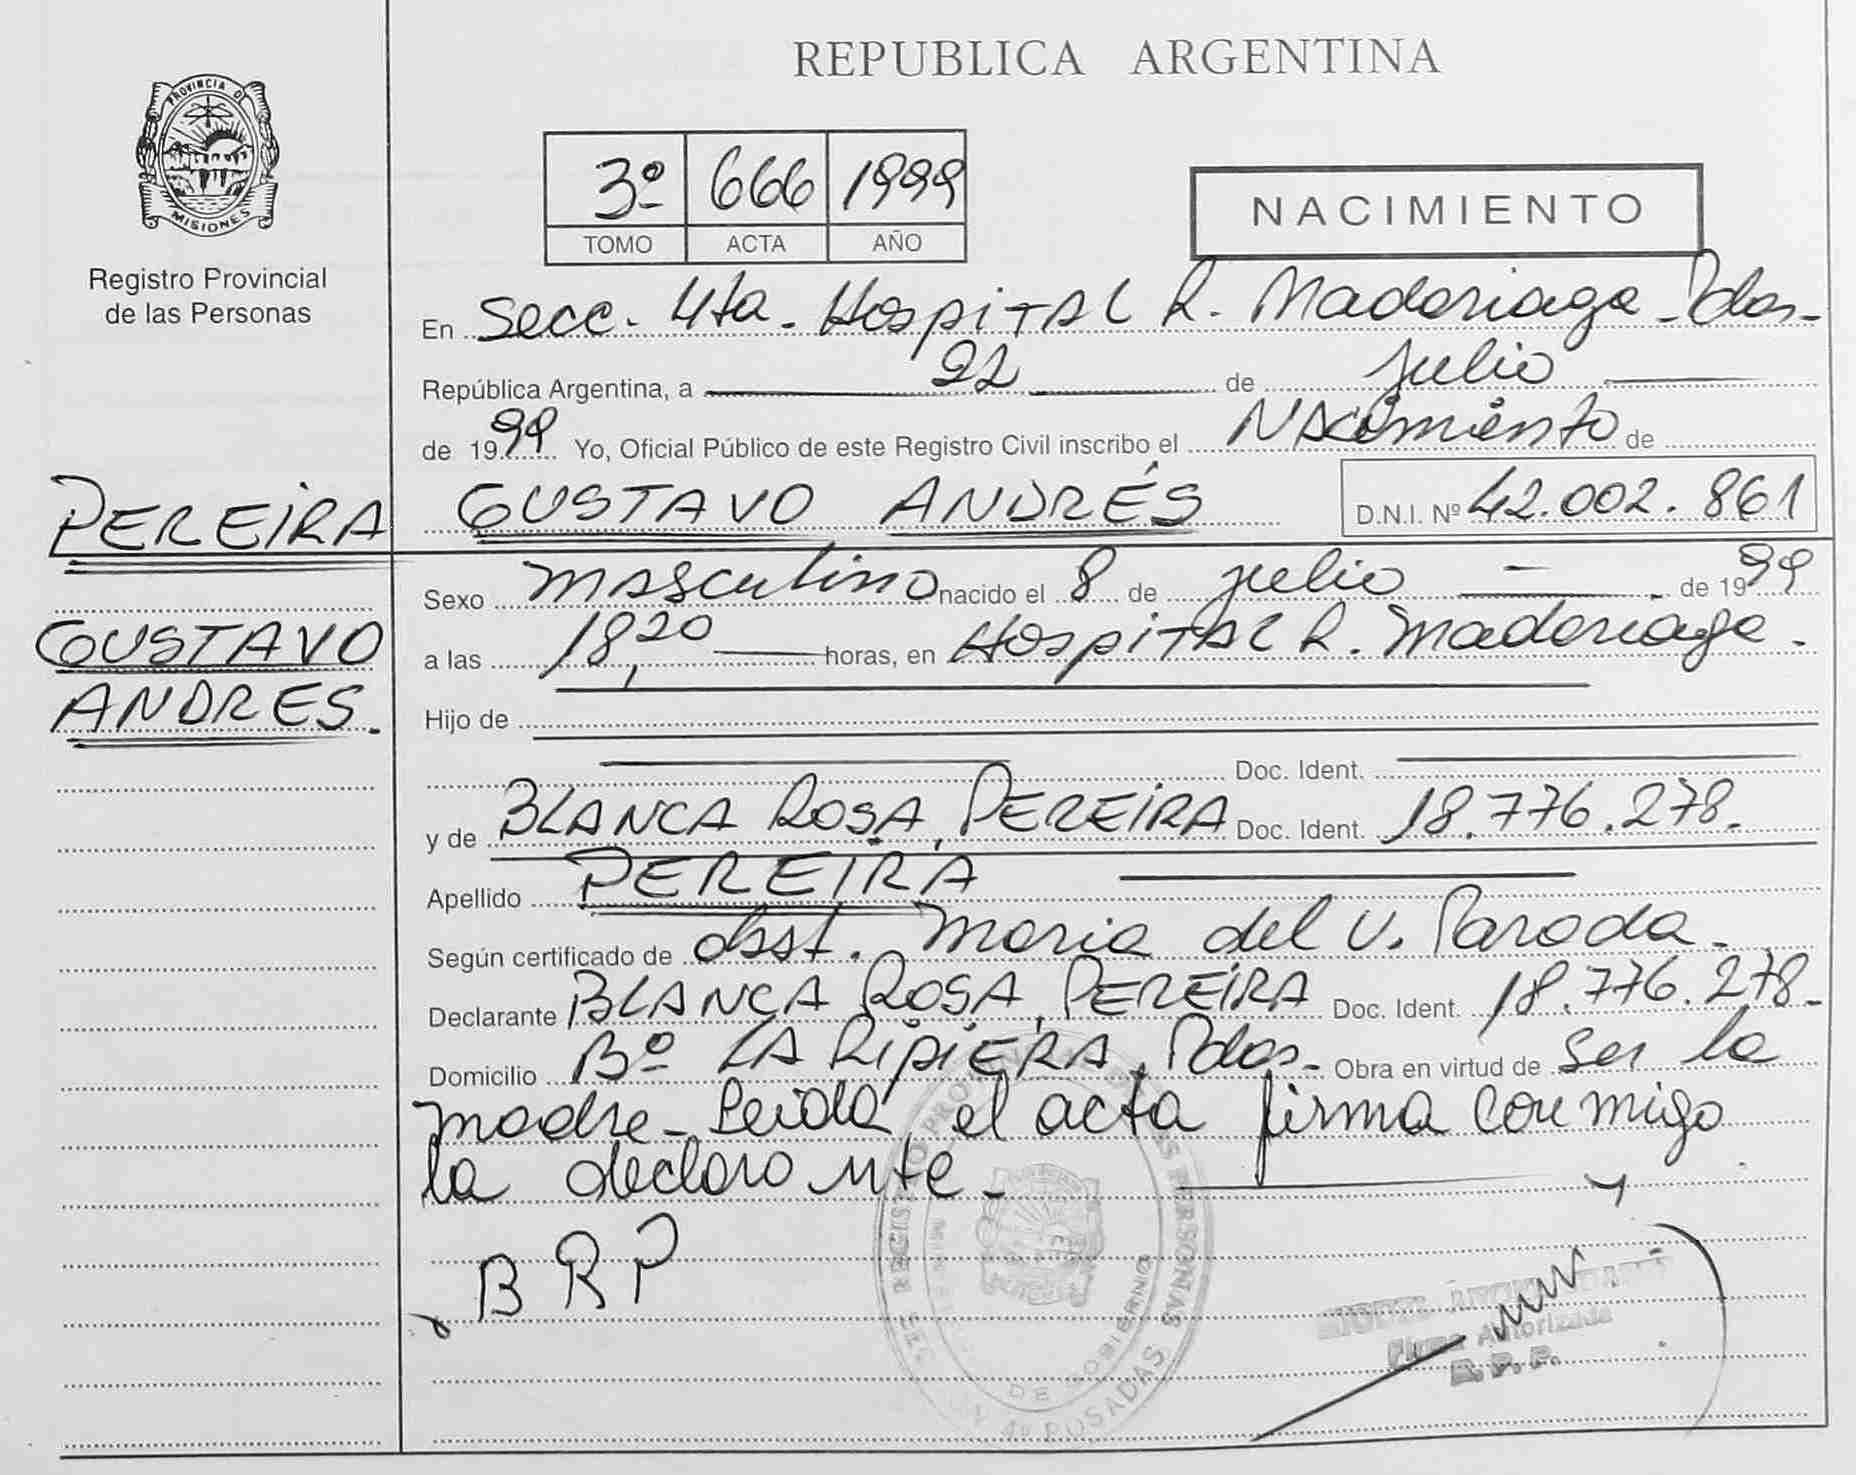 REPUBLICA ARGENTINA
PROVINCIA DE
MISIONES
Registro Provincial
de las Personas
3º 666 1999
TOMO ACTA AÑO
NACIMIENTO
En Secc. 4ta. Hospital R. Madariaga - Pdas-
República Argentina, a 22 de julio
de 1999 Yo, Oficial Público de este Registro Civil inscribo el NACimiento de
PEREIRA
GUSTAVO ANDRÉS D.N.I. Nº 42.002.861
GUSTAVO
ANDRES.
Sexo masculino nacido el 8 de julio de 1999
a las 18,20 horas, en Hospital R. Madariaga.
Hijo de
Doc. Ident.
y de BLANCA ROSA PEREIRA Doc. Ident. 18.776.278.
Apellido PEREIRA
Según certificado de obst. Maria del V. Paroda.
Declarante BLANCA ROSA PEREIRA Doc. Ident. 18.776.278.
Domicilio Bº LA RIPIERA, Pdas- Obra en virtud de ser la
madre - Leida el acta firma conmigo
la declarante -
BRP
REGISTRO PROVINCIAL DE LAS PERSONAS
DE GOBIERNO
4º POSADAS
Firma Autorizada
R. P. P.